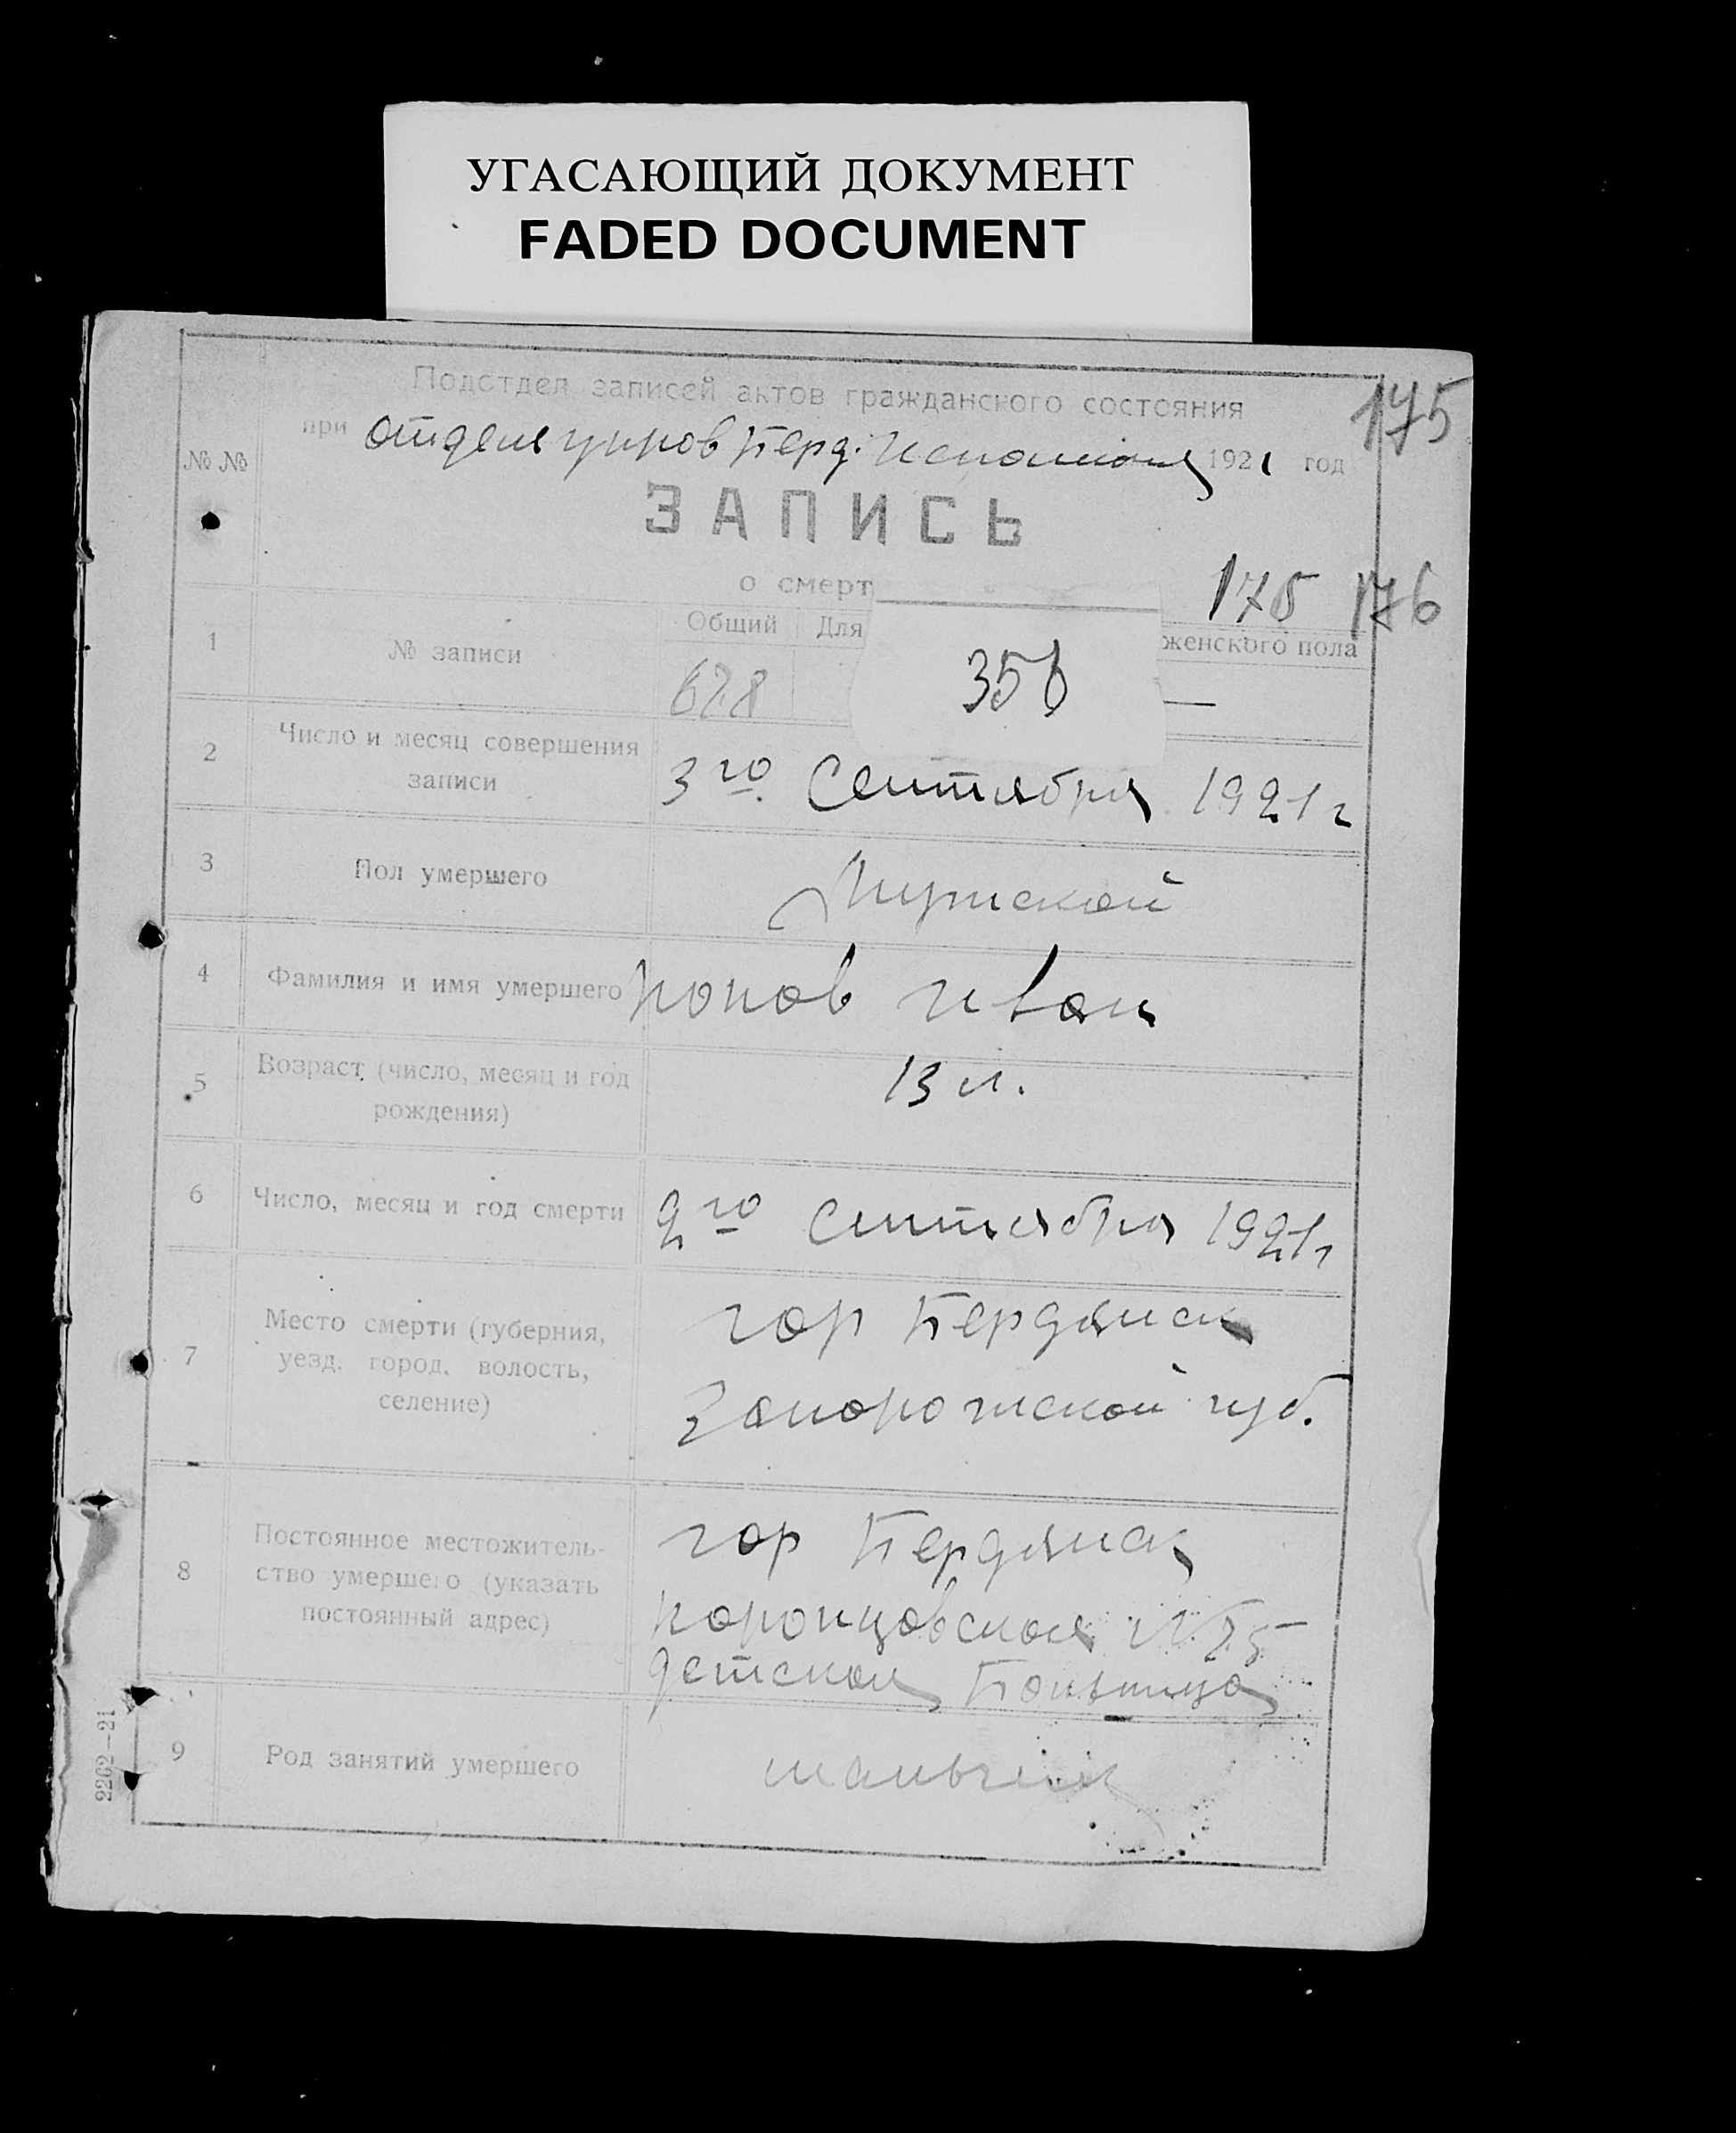 УГАСАЮЩИЙ ДОКУМЕНТ
FADED DOCUMENT
175
Подотдел записей актов гражданского состояния
№ № при Отделе управ Берд. Исполкома 1921 год
ЗАПИСЬ
о смерт
175 176
1 № записи Общий Для женского пола
628 356 —
2 Число и месяц совершения записи
3го Сентября 1921 г
3 Пол умершего Мужской
4 Фамилия и имя умершего Попов Иван
5 Возраст (число, месяц и год рождения)
13 л.
6 Число, месяц и год смерти 2го Сентября 1921 г
7 Место смерти (губерния, уезд, город, волость, селение)
гор Бердянск
Запорожской губ.
8 Постоянное местожительство умершего (указать постоянный адрес)
гор Бердянск
Воронцовская № 25
детская Больница
9 Род занятий умершего мальчик
2262—21